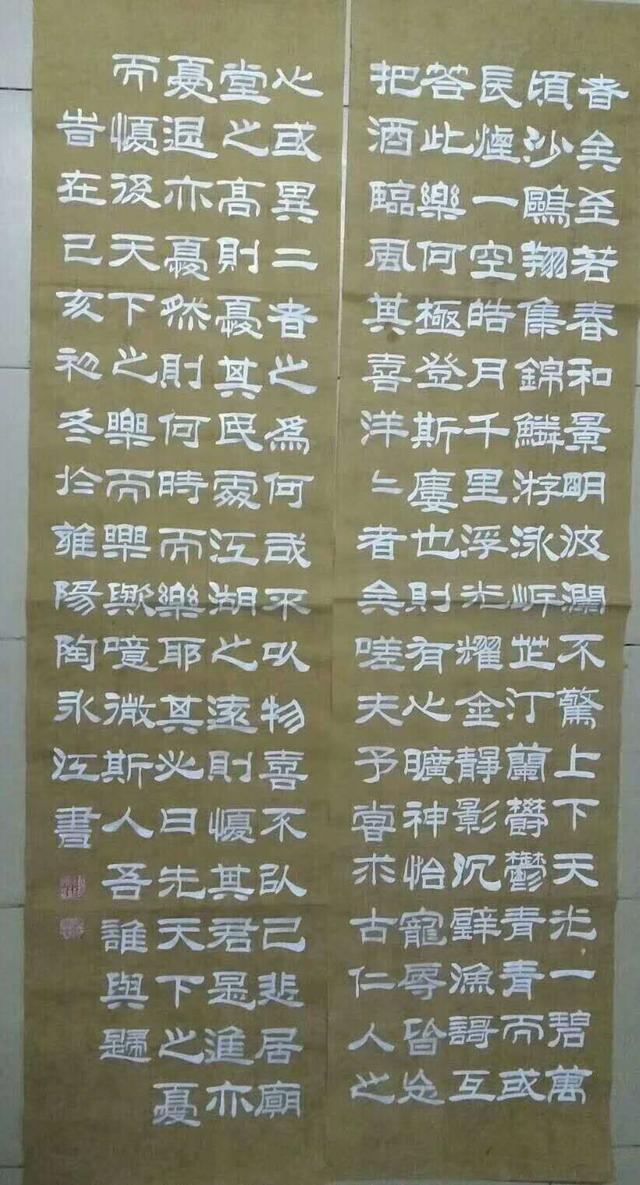 者矣至若春和景明波瀾不驚上下天光一碧萬
頃沙鷗翔集錦鱗游泳岸芷汀蘭鬱鬱青青而或
長煙一空皓月千里浮光耀金靜影沉璧漁謌互
荅此樂何極登斯樓也則有心曠神怡寵辱皆忘
把酒臨風其喜洋〻者矣嗟夫予嘗求古仁人之
心或異二者之為何或不以物喜不以己悲居廟
堂之高則憂其民處江湖之遠則懮其君是進亦
憂退亦憂然則何時而樂耶其必曰先天下之憂
而懮後天下之樂而樂歟噫微斯人吾誰與歸
旹在己亥初冬於雒陽陶永江書